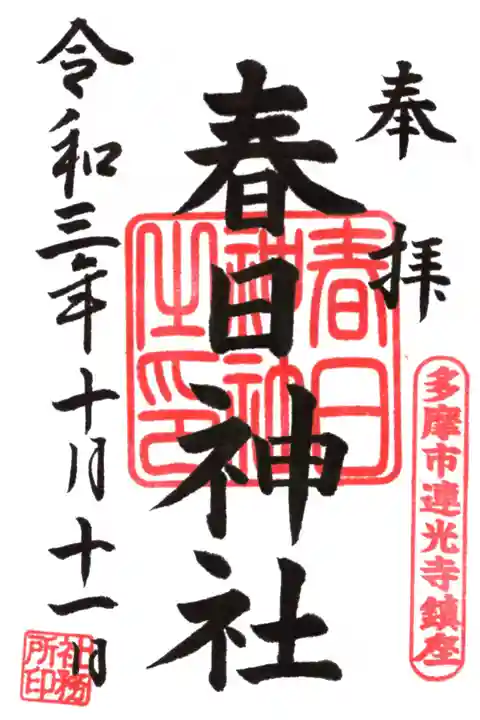 奉拝
多摩市連光寺鎮座
春日神社
春日
神社
之印
令和三年十月十一日
社務
所印